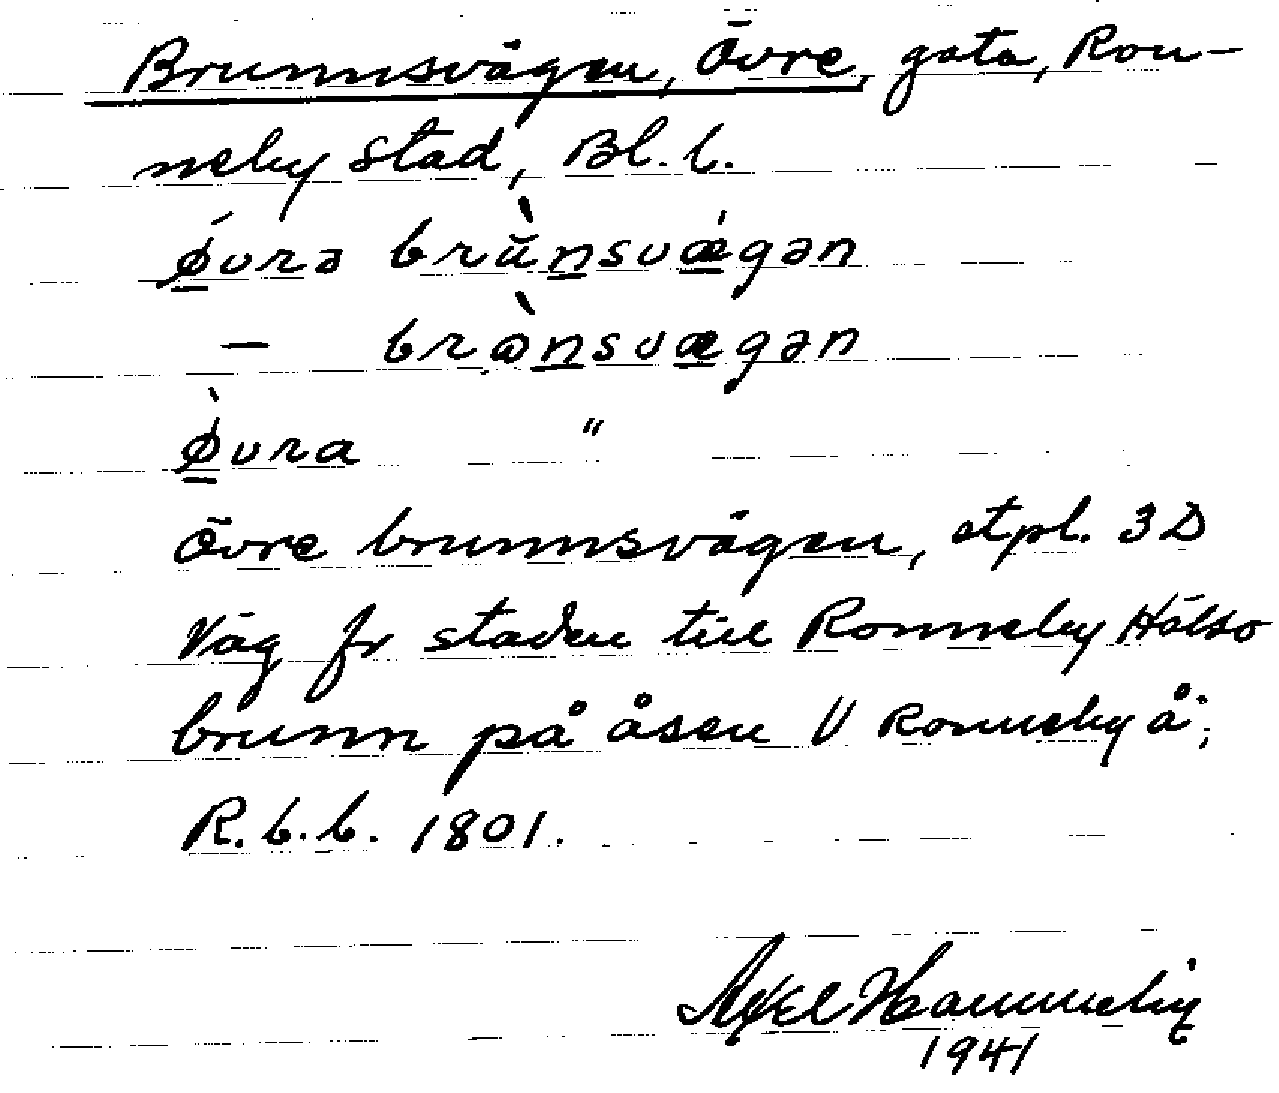 Brunnsvägen, Övre, gata, Ron-
neby stad, Bl. l.
ǿvrə brùnsvǽgən
— brònsvægən
ǿ̀vra "
Övre brunnsvägen, stpl. 3D
Väg fr staden till Ronneby Hälso
brunn på åsen V Ronneby å;
R.b.b. 1801.
Axel
1941